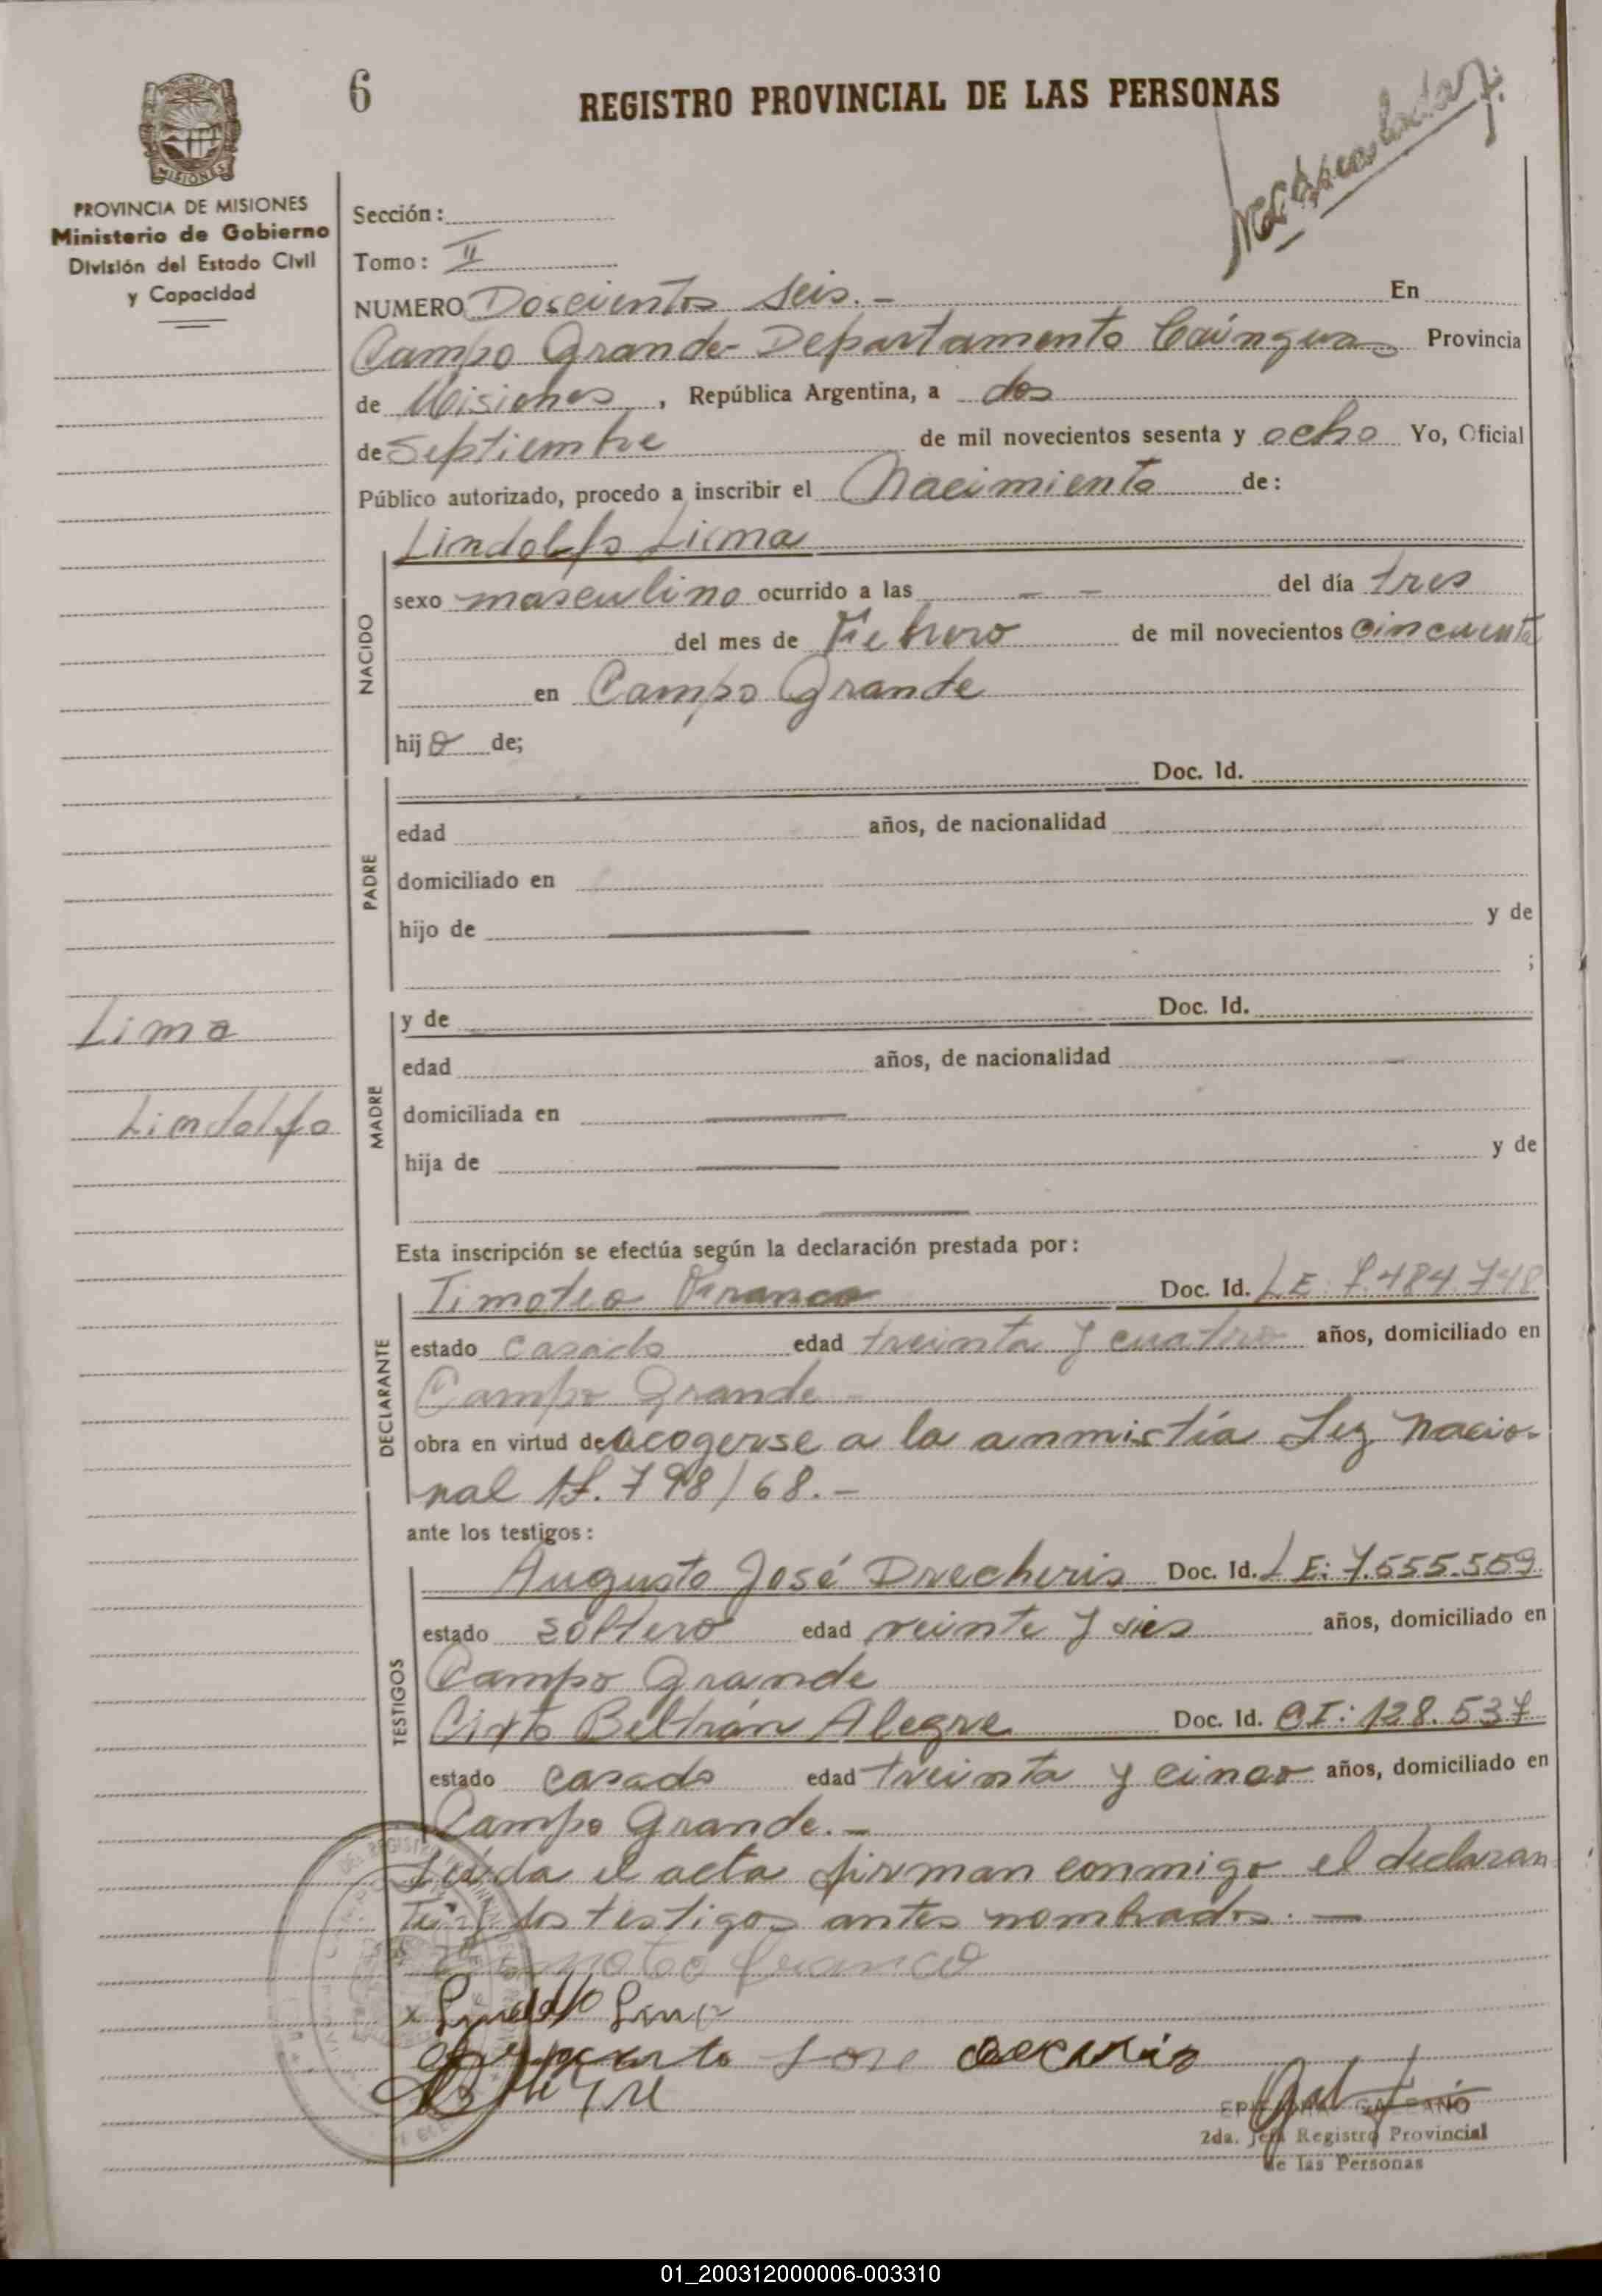 6
REGISTRO PROVINCIAL DE LAS PERSONAS
MISIONES
PROVINCIA DE MISIONES
Ministerio de Gobierno
División del Estado Civil
y Capacidad
Sección:
Tomo: II
NUMERO Doscientos seis.- En
Campo Grande - Departamento Caínguas Provincia
de Misiones, República Argentina, a dos
de Septiembre de mil novecientos sesenta y ocho Yo, Oficial
Público autorizado, procedo a inscribir el Nacimiento de:
Lindolfo Lima
NACIDO
sexo masculino ocurrido a las - - del día tres
del mes de Febrero de mil novecientos cincuenta
en Campo Grande
hijo de;
PADRE
Doc. Id.
edad años, de nacionalidad
domiciliado en
hijo de y de
;
Lima
Lindolfo
MADRE
y de Doc. Id.
edad años, de nacionalidad
domiciliada en
hija de y de
Esta inscripción se efectúa según la declaración prestada por:
DECLARANTE
Timoteo Franco Doc. Id. LE 7.484.748
estado casado edad treinta y cuatro años, domiciliado en
Campo Grande -
obra en virtud de acogerse a la anmistía Ley Nacio-
nal 17.798/68.-
ante los testigos:
TESTIGOS
Augusto José Drecheris Doc. Id. LE: 7.555.509
estado soltero edad veinte y seis años, domiciliado en
Campo Grande
Cirto Beltrán Alegre Doc. Id. CI: 128.537
estado casado edad treinta y cinco años, domiciliado en
Campo Grande.-
Leída el acta firman conmigo el declaran
te y los testigos antes nombrados.-
Timoteo Franco
x Lindolfo Lima
Jose
Alegre
GALEANO
2da. Jefa Registro Provincial
de las Personas
01_200312000006-003310